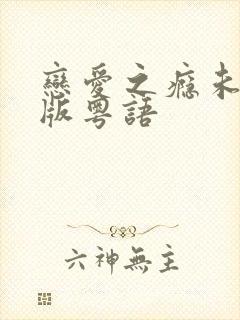 戀愛之癮未
版粵語
六神無主